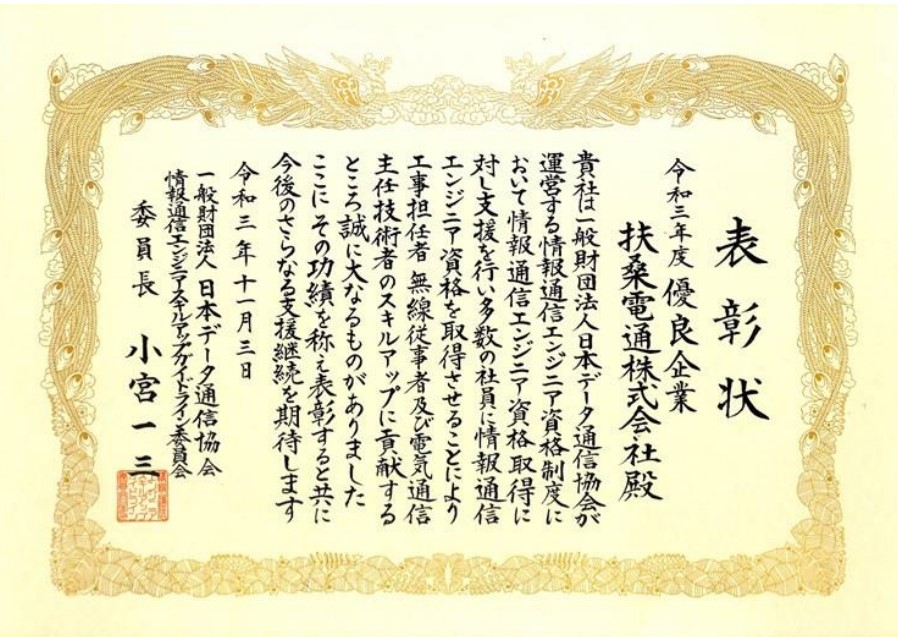 表彰状
令和三年度 優良企業
扶桑電通株式会社殿
貴社は一般財団法人日本データ通信協会が
運営する情報通信エンジニア資格制度に
おいて情報通信エンジニア資格取得に
対し支援を行い多数の社員に情報通信
エンジニア資格を取得させることにより
工事担任者 無線従事者及び電気通信
主任技術者のスキルアップに貢献する
ところ誠に大なるものがありました
ここに その功績を称え表彰すると共に
今後のさらなる支援継続を期待します
令和三年十一月三日
一般財団法人 日本データ通信協会
情報通信エンジニアスキルアップガイドライン委員会
委員長 小宮一三